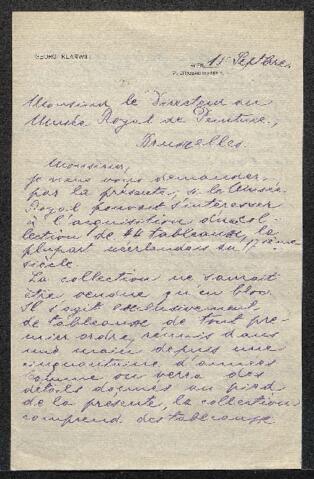 GEORG KLARWILL
15 Septbre
Monsieur le Directeur du
Musée Royal de Peinture,
Bruxelles.
Monsieur,
je viens vous demander,
par la présente, si le Musée
Royal pouvait s'intéresser
à l'acquisition d'une col-
lection de 44 tableaux, la
plupart neerlandais du 17ième
siècle.
La collection ne saurait
être vendue qu'en bloc.
Il s'agit exclusivement
de tableaux de tout pre-
mier ordre, réunis dans
une main depuis une
cinquantaine d'années
comme on verra des
détails donnés au pied
de la présente, la collection
comprend des tableaux